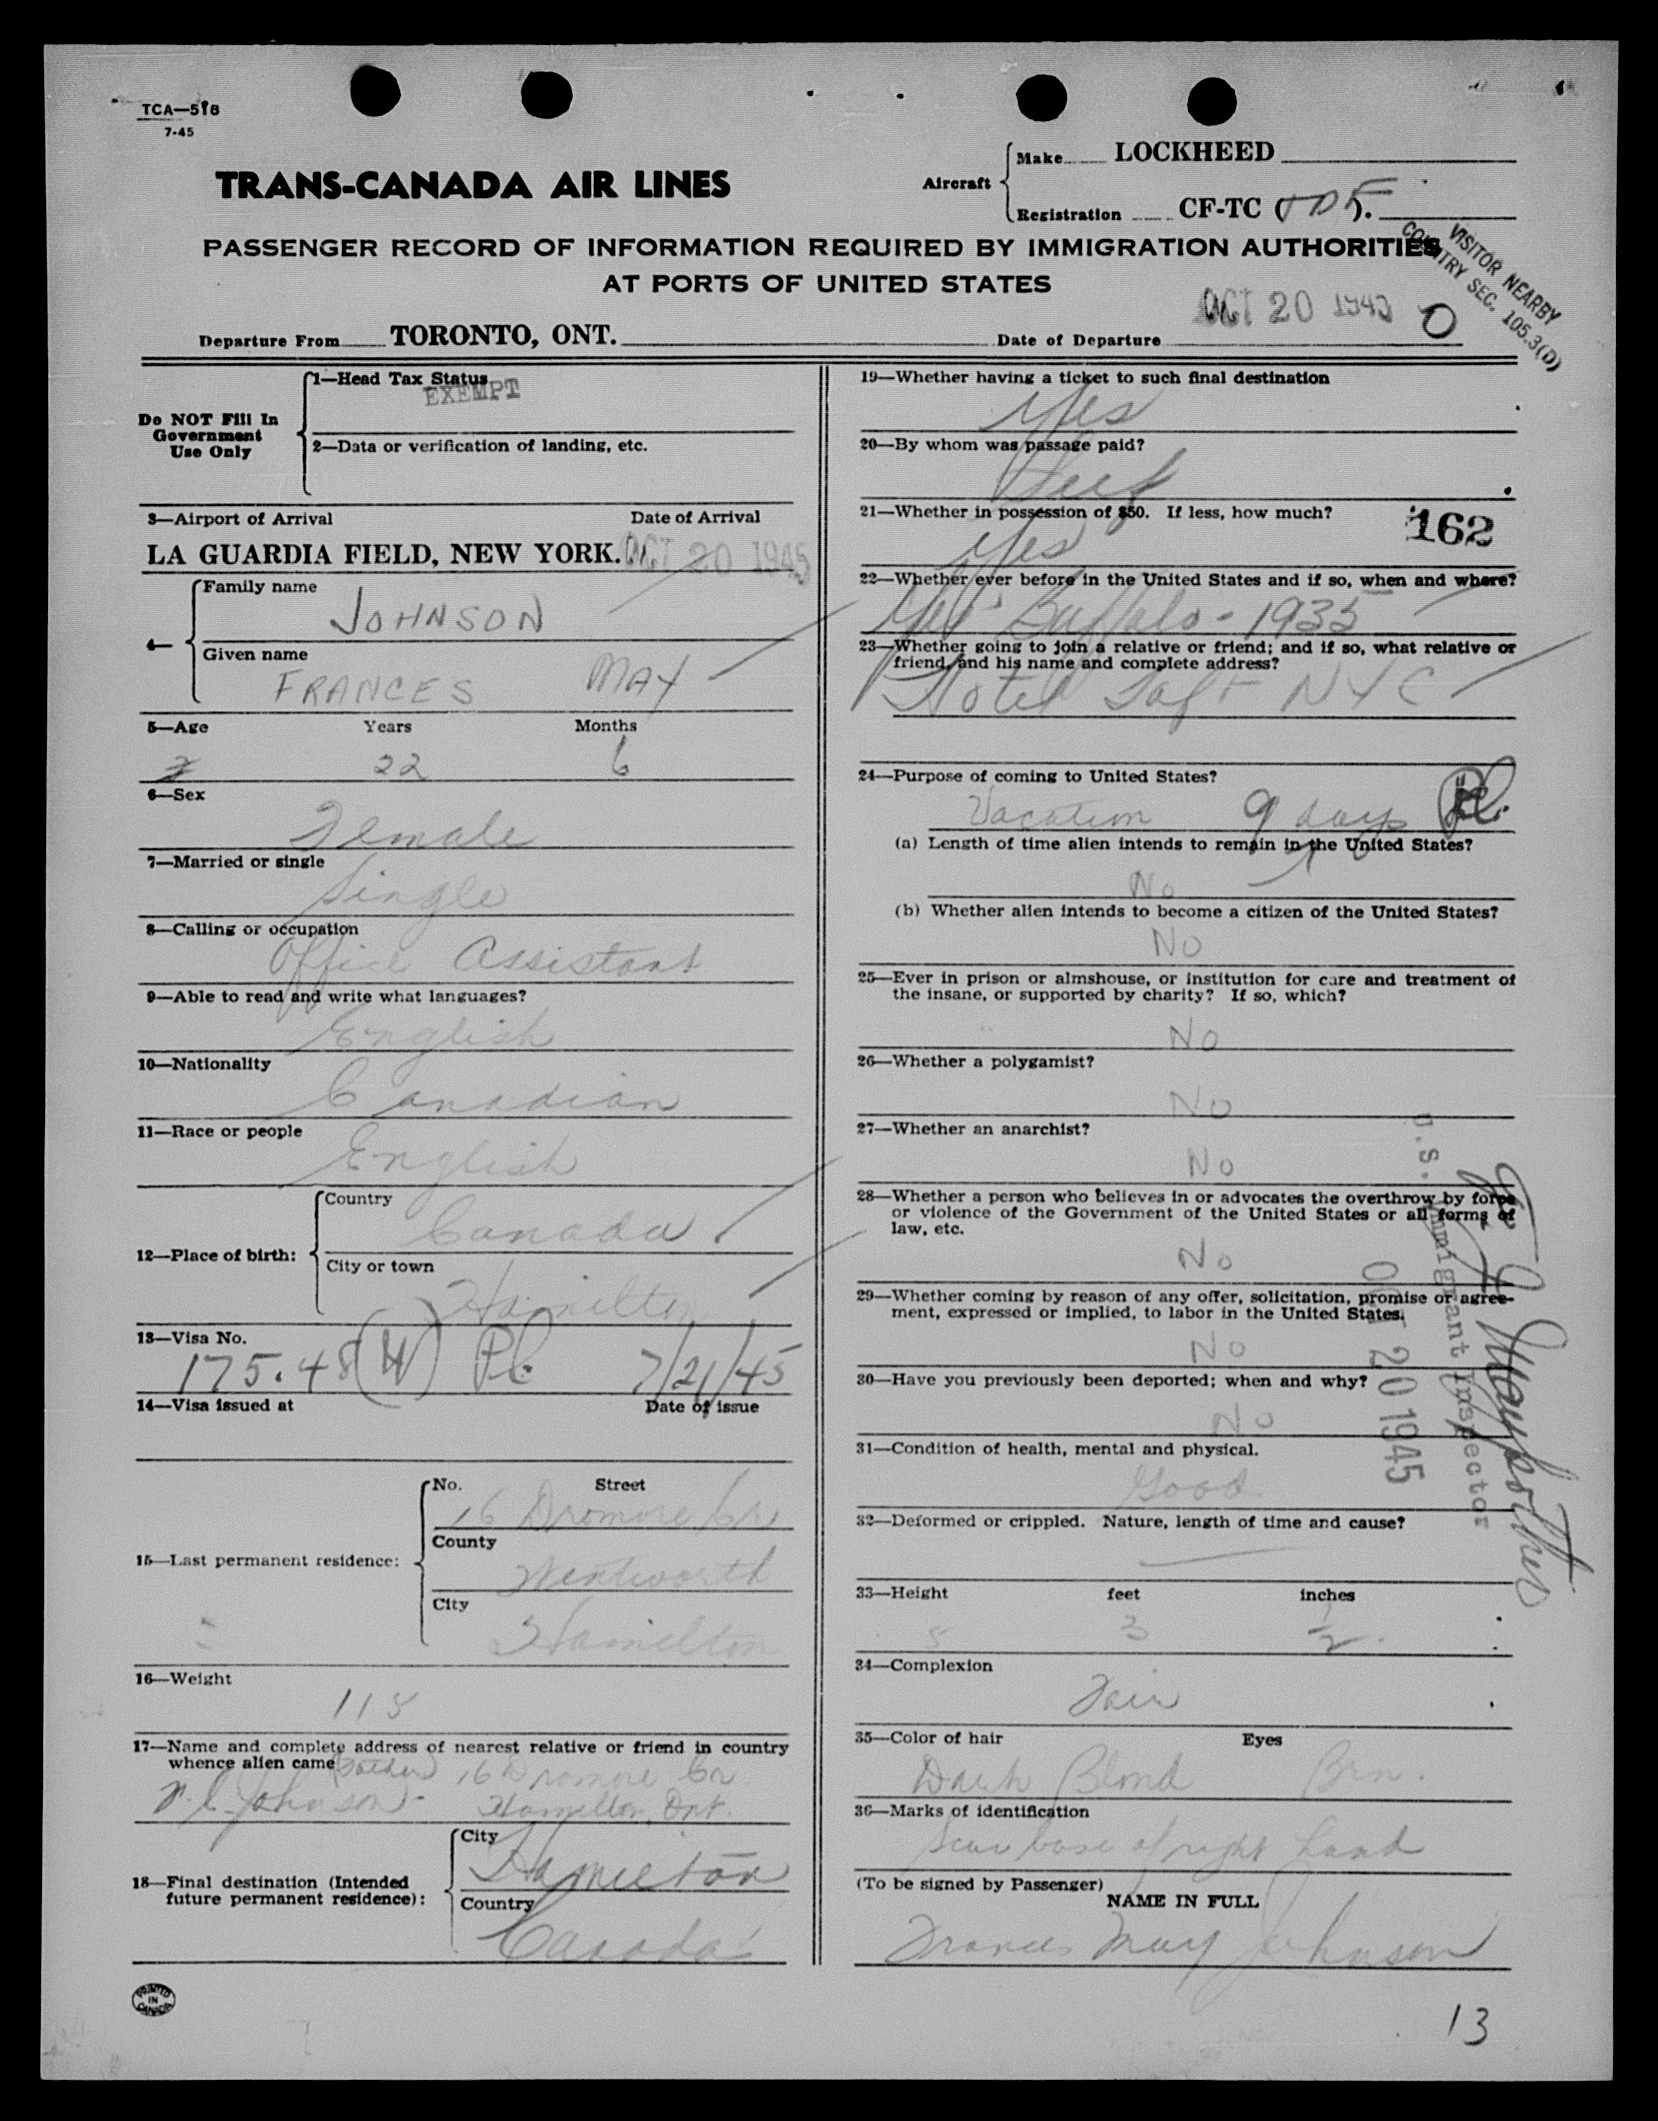 TCA—518
7-45
TRANS-CANADA AIR LINES
Aircraft
Make LOCKHEED
Registration CF-TC ( ).
PASSENGER RECORD OF INFORMATION REQUIRED BY IMMIGRATION AUTHORITIES
AT PORTS OF UNITED STATES
VISITOR NEARBY
COUNTRY SEC. 105.3(D)
Departure From TORONTO, ONT. Date of Departure OCT 20 1945
Do NOT Fill In
Government
Use Only
1—Head Tax Status
EXEMPT
2—Data or verification of landing, etc.
3—Airport of Arrival Date of Arrival
LA GUARDIA FIELD, NEW YORK. OCT 20 1945
4—
Family name
JOHNSON
Given name
FRANCES MAY
5—Age Years Months
22 6
6—Sex
Female
7—Married or single
Single
8—Calling or occupation
Office Assistant
9—Able to read and write what languages?
English
10—Nationality
Canadian
11—Race or people
English
12—Place of birth:
Country
Canada
City or town
Hamilton
13—Visa No.
175.48 (W) 7/21/45
14—Visa issued at Date of issue
15—Last permanent residence:
No. Street
16 Dromore Cr
County
Wentworth
City
Hamilton
16—Weight
118
17—Name and complete address of nearest relative or friend in country
whence alien came (Father) 16 Dromore Cr
Johnson - Hamilton, Ont.
18—Final destination (Intended
future permanent residence):
City
Hamilton
Country
Canada
PRINTED
IN
CANADA
19—Whether having a ticket to such final destination
Yes
20—By whom was passage paid?
Self
21—Whether in possession of $50. If less, how much?
Yes
162
22—Whether ever before in the United States and if so, when and where?
Yes Buffalo - 1935
23—Whether going to join a relative or friend; and if so, what relative or
friend, and his name and complete address?
Hotel Taft NYC
24—Purpose of coming to United States?
Vacation 9 days
(a) Length of time alien intends to remain in the United States?
No
(b) Whether alien intends to become a citizen of the United States?
No
25—Ever in prison or almshouse, or institution for care and treatment of
the insane, or supported by charity? If so, which?
No
26—Whether a polygamist?
No
27—Whether an anarchist?
No
28—Whether a person who believes in or advocates the overthrow by force
or violence of the Government of the United States or all forms of
law, etc.
No
29—Whether coming by reason of any offer, solicitation, promise or agree-
ment, expressed or implied, to labor in the United States.
No
30—Have you previously been deported; when and why?
No
31—Condition of health, mental and physical.
Good
32—Deformed or crippled. Nature, length of time and cause?
33—Height feet inches
5 3 1/2
34—Complexion
Fair
35—Color of hair Eyes
Dark Blond Brn.
36—Marks of identification
Scar base of right hand
(To be signed by Passenger)
NAME IN FULL
Frances May Johnson
U.S. Immigrant Inspector
OCT 20 1945
13